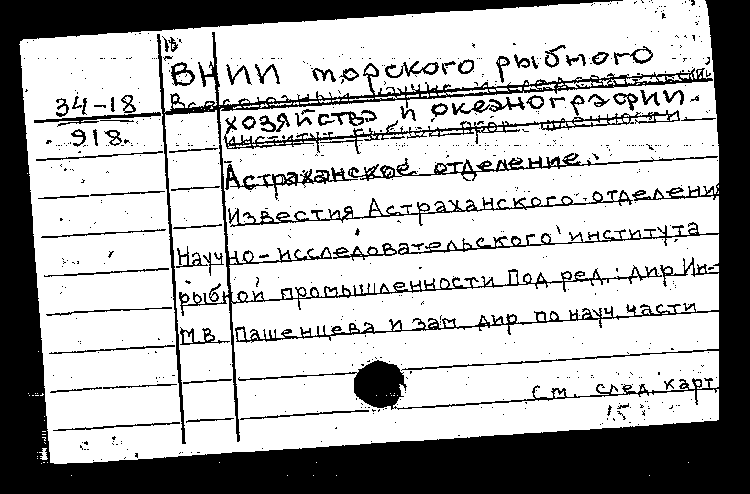 ВНИИ морского рыбного
34-18
Всесоюзный научно-исследовательский
хозяйства и океанографии.
918.
институт рыбной промышленности.
Астраханское отделение.
Известия Астраханского отделения
Научно-исследовательского института
рыбной промышленности Под ред.: дир. Ин-
М.В. Пашенцева и зам. дир. по науч. части
См. след. карт